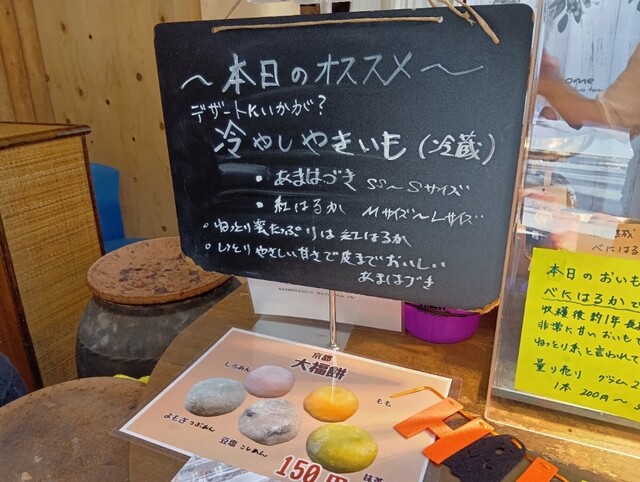 ～本日のオススメ～
デザートにいかが？
冷やしやきいも(冷蔵)
・あまはづき SS～Sサイズ
・紅はるか Mサイズ～Lサイズ
・ねっとり蜜たっぷりは紅はるか
・しっとりやさしい甘さで皮までおいしい
あまはづき
京都
大福餅
しろあん
もも
よもぎつぶあん
豆塩こしあん
抹茶
150円
come
べにはる
本日のおいも
べにはるかで
収穫後約1年長
非常に甘いおいもで
ねっとり系と言われて
量り売り グラム
1本 200円～